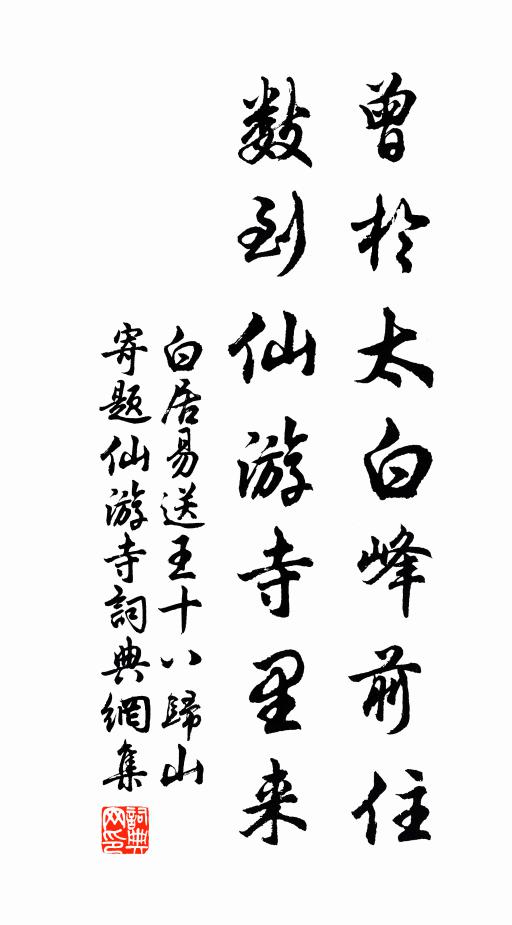 曾於太白峰前住
数到仙游寺里来
白居易送王十八歸山
寄題仙游寺詞典網集
詞典网印